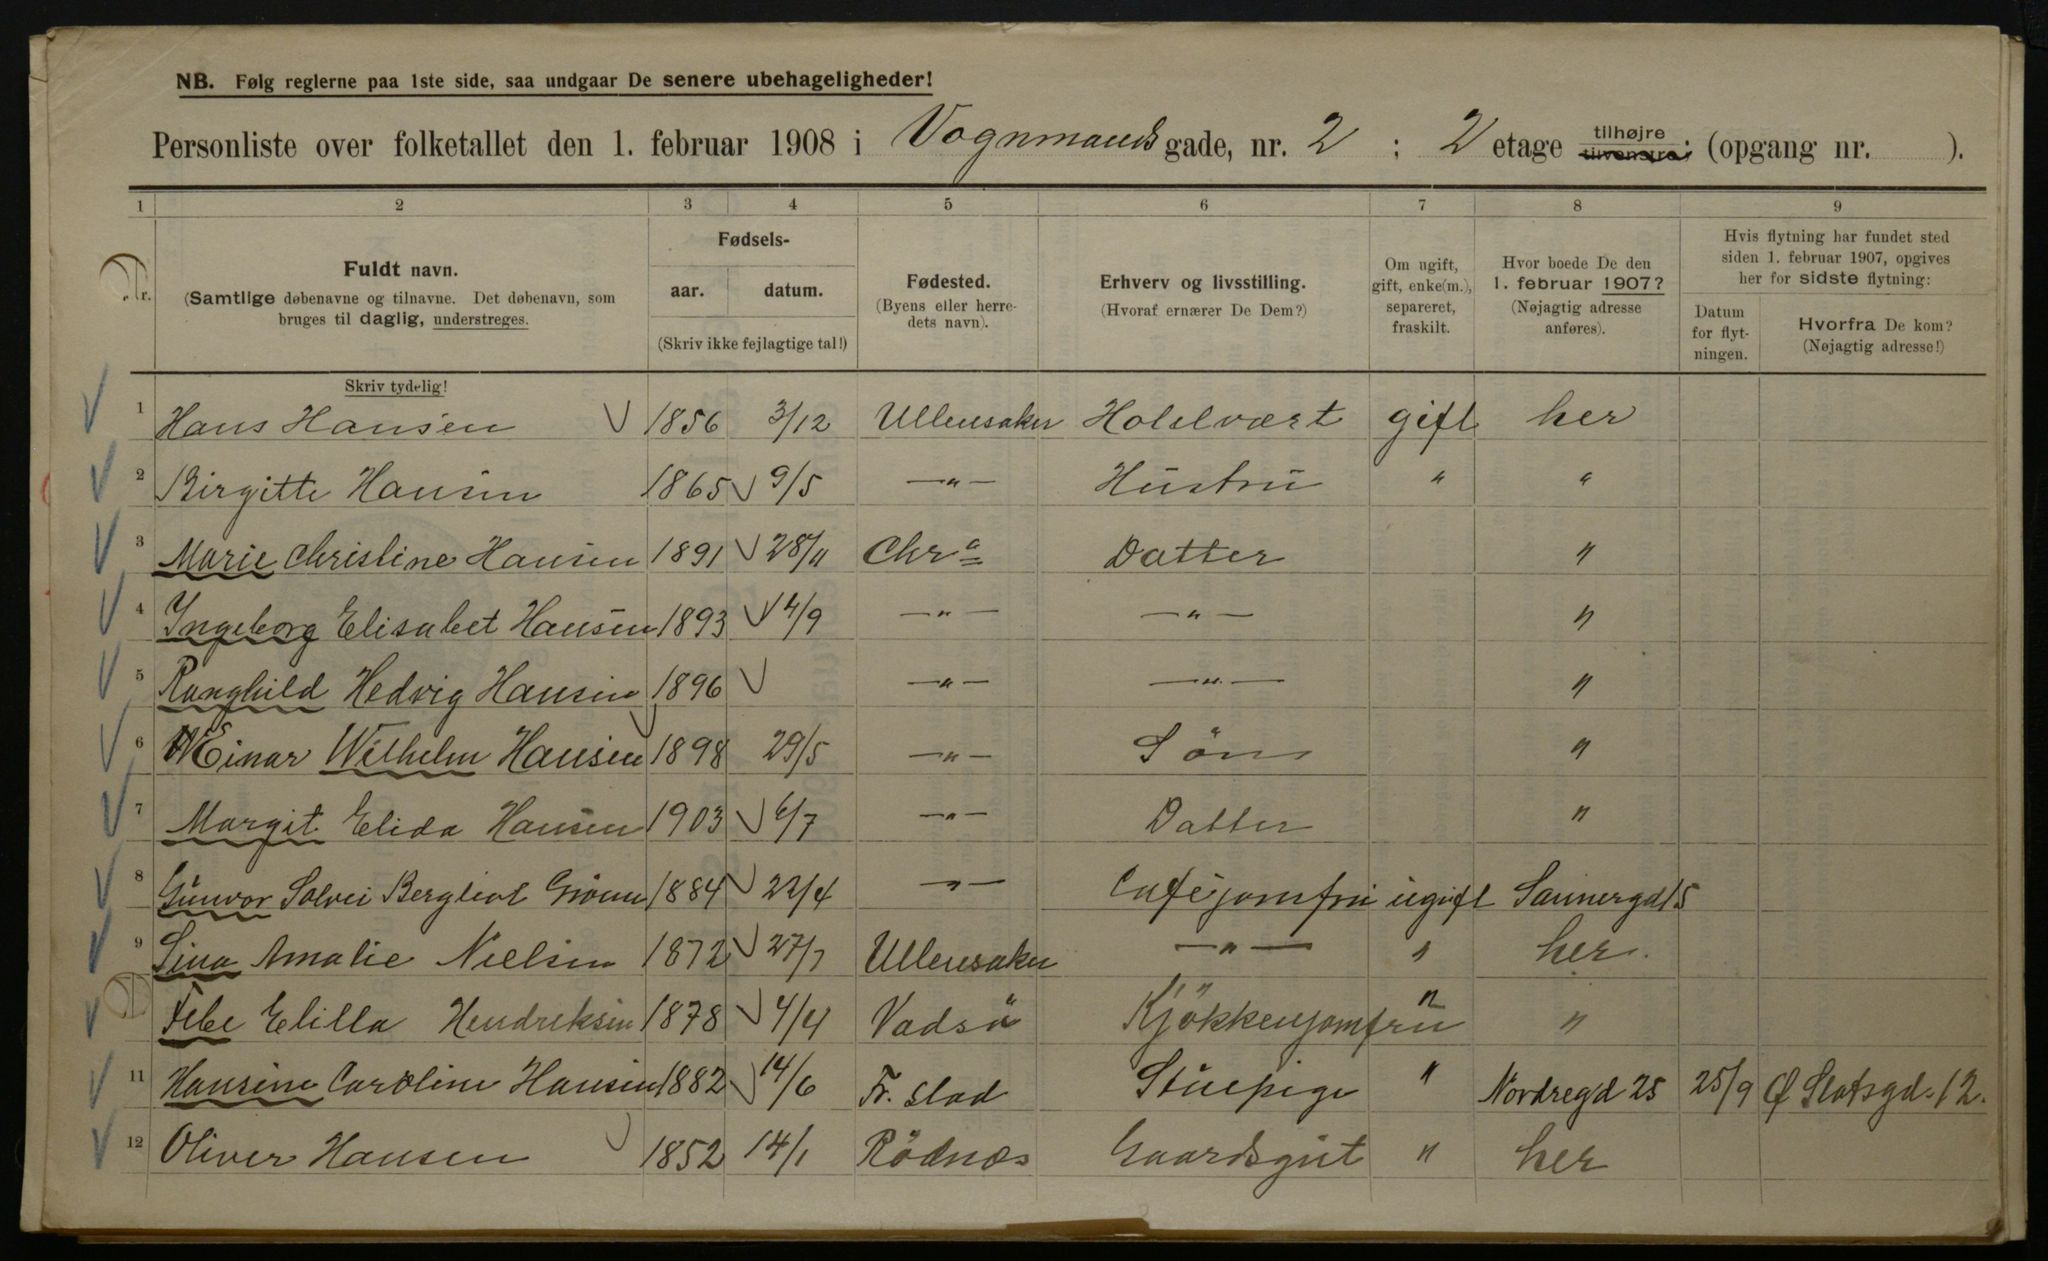 NB. Følg reglerne paa 1ste side, saa undgaar De senere ubehageligheder!
Personliste over folketallet den 1. februar 1908 i Vognmands gade, nr. 2 ; 2 etage tilhøjre tilvenstre; (opgang nr. ).
1 2 3 4 5 6 7 8 9
Nr. Fuldt navn. (Samtlige døbenavne og tilnavne. Det døbenavn, som bruges til daglig, understreges. Skriv tydelig!
Fødsels- aar. datum. (Skriv ikke fejlagtige tal!)
Fødested. (Byens eller herredets navn).
Erhverv og livsstilling. (Hvoraf ernærer De Dem?)
Om ugift, gift, enke(m.), separeret, fraskilt.
Hvor boede De den 1. februar 1907? (Nøjagtig adresse anføres).
Hvis flytning har fundet sted siden 1. februar 1907, opgives her for sidste flytning:
Datum for flytningen. Hvorfra De kom? (Nøjagtig adresse!)
1 Hans Hansen 1856 3/12 Ullensaker Hotelvært gift her
2 Birgitte Hansen 1865 9/5 —"— Hustru " "
3 Marie Christine Hansen 1891 28/11 Chra Datter "
4 Ingeborg Elisabet Hansen 1893 14/9 —"— —"— "
5 Ranghild Hedvig Hansen 1896 —"— —"— "
6 Einar Wilhelm Hansen 1898 29/5 —"— Sön "
7 Margit Elida Hansen 1903 6/7 —"— Datter "
8 Gunvor Solvei Bergliot 1884 22/4 —"— Cafejomfru ugift Sannergd 15
9 Lina Amalie Nielsen 1872 27/7 Ullensaker —"— " her.
Febe Elilla Hendriksen 1878 4/4 Vadsö Kjökkenjomfru " "
11 Hansine Caroline Hansen 1882 14/6 Fr. stad Stuepige " Nordregd 25 25/9 Ø Slotsgd. 12.
12 Oliver Hansen 1852 14/1 Rödnæs Gaardsgut " her